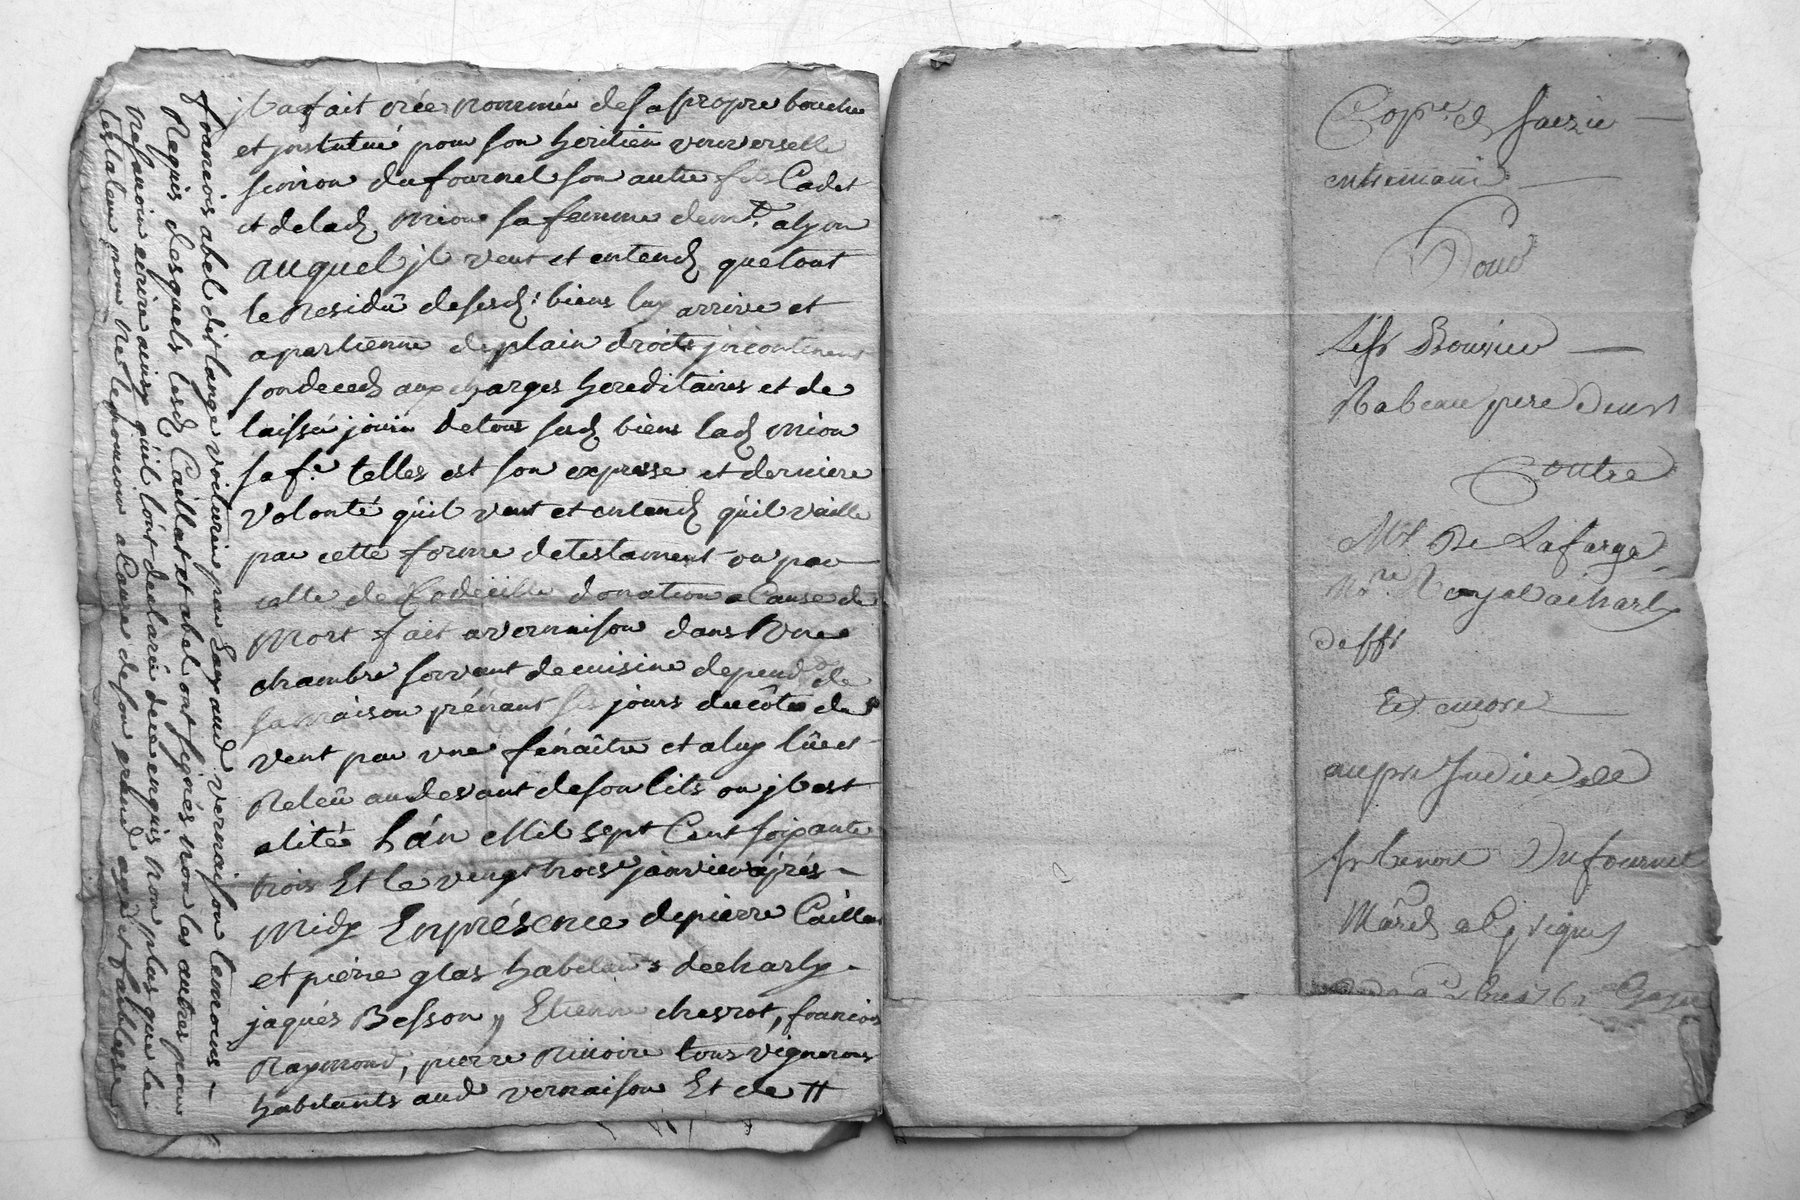 jl a fait crée nommée de sa propre bouche
et jnstitué pour son heritier vniverselle
simon dufournel son autre fils Cadet
et de lad. mion sa femme dem.t alyon
auquel jl veut et entend que tout
le Residû desesd: biens luy arrive et
apartienne de plain droit jncontinent
son deced aux charges hereditaires et de
laissé jouir de tous sesd. biens lad. mion
sa f.e telles est son expresse et derniere
volonté qúil veut et entend qúil vaille
par cette forme de testament ou par
celle de Codicille donation a Cause de
Mort fait a vernaison dans vne
chambre servant de cuisine depend.te de
sa maison prénant ses jours du côté de
vent par vne fénaître et aluy lûe et
Relëu audevant de son lits ou jl est
alité Lán Mil sept Cent soixante
trois Et le vengt trois janvier aprés
Midy En présence de pierre Caillat
et piérre glas habitants de charly
jaqués Besson, Etienne chesrot, francois
Raymond, pierre tous vignerons
habitants aud vernaison Et de #
# francois abel dit lange voiturier par Eay aud vernaison temoins
Requis desquels lesd. Caillat et abel ont signés non les autres pour
ne sauoir ecrire ainsy quil lónt declaré de ce enquis non plus que le
testateur pour ne le pouuoir a Cause de son grand age et faiblesse
Cop.e de saizie
entremain
Pour
Le sr
Rabeau pere deur
Contre
Mr De Lafarge
Mr.re a charly
deffr
Et encore
au prejudice de
sr benoit Dufournel
March a